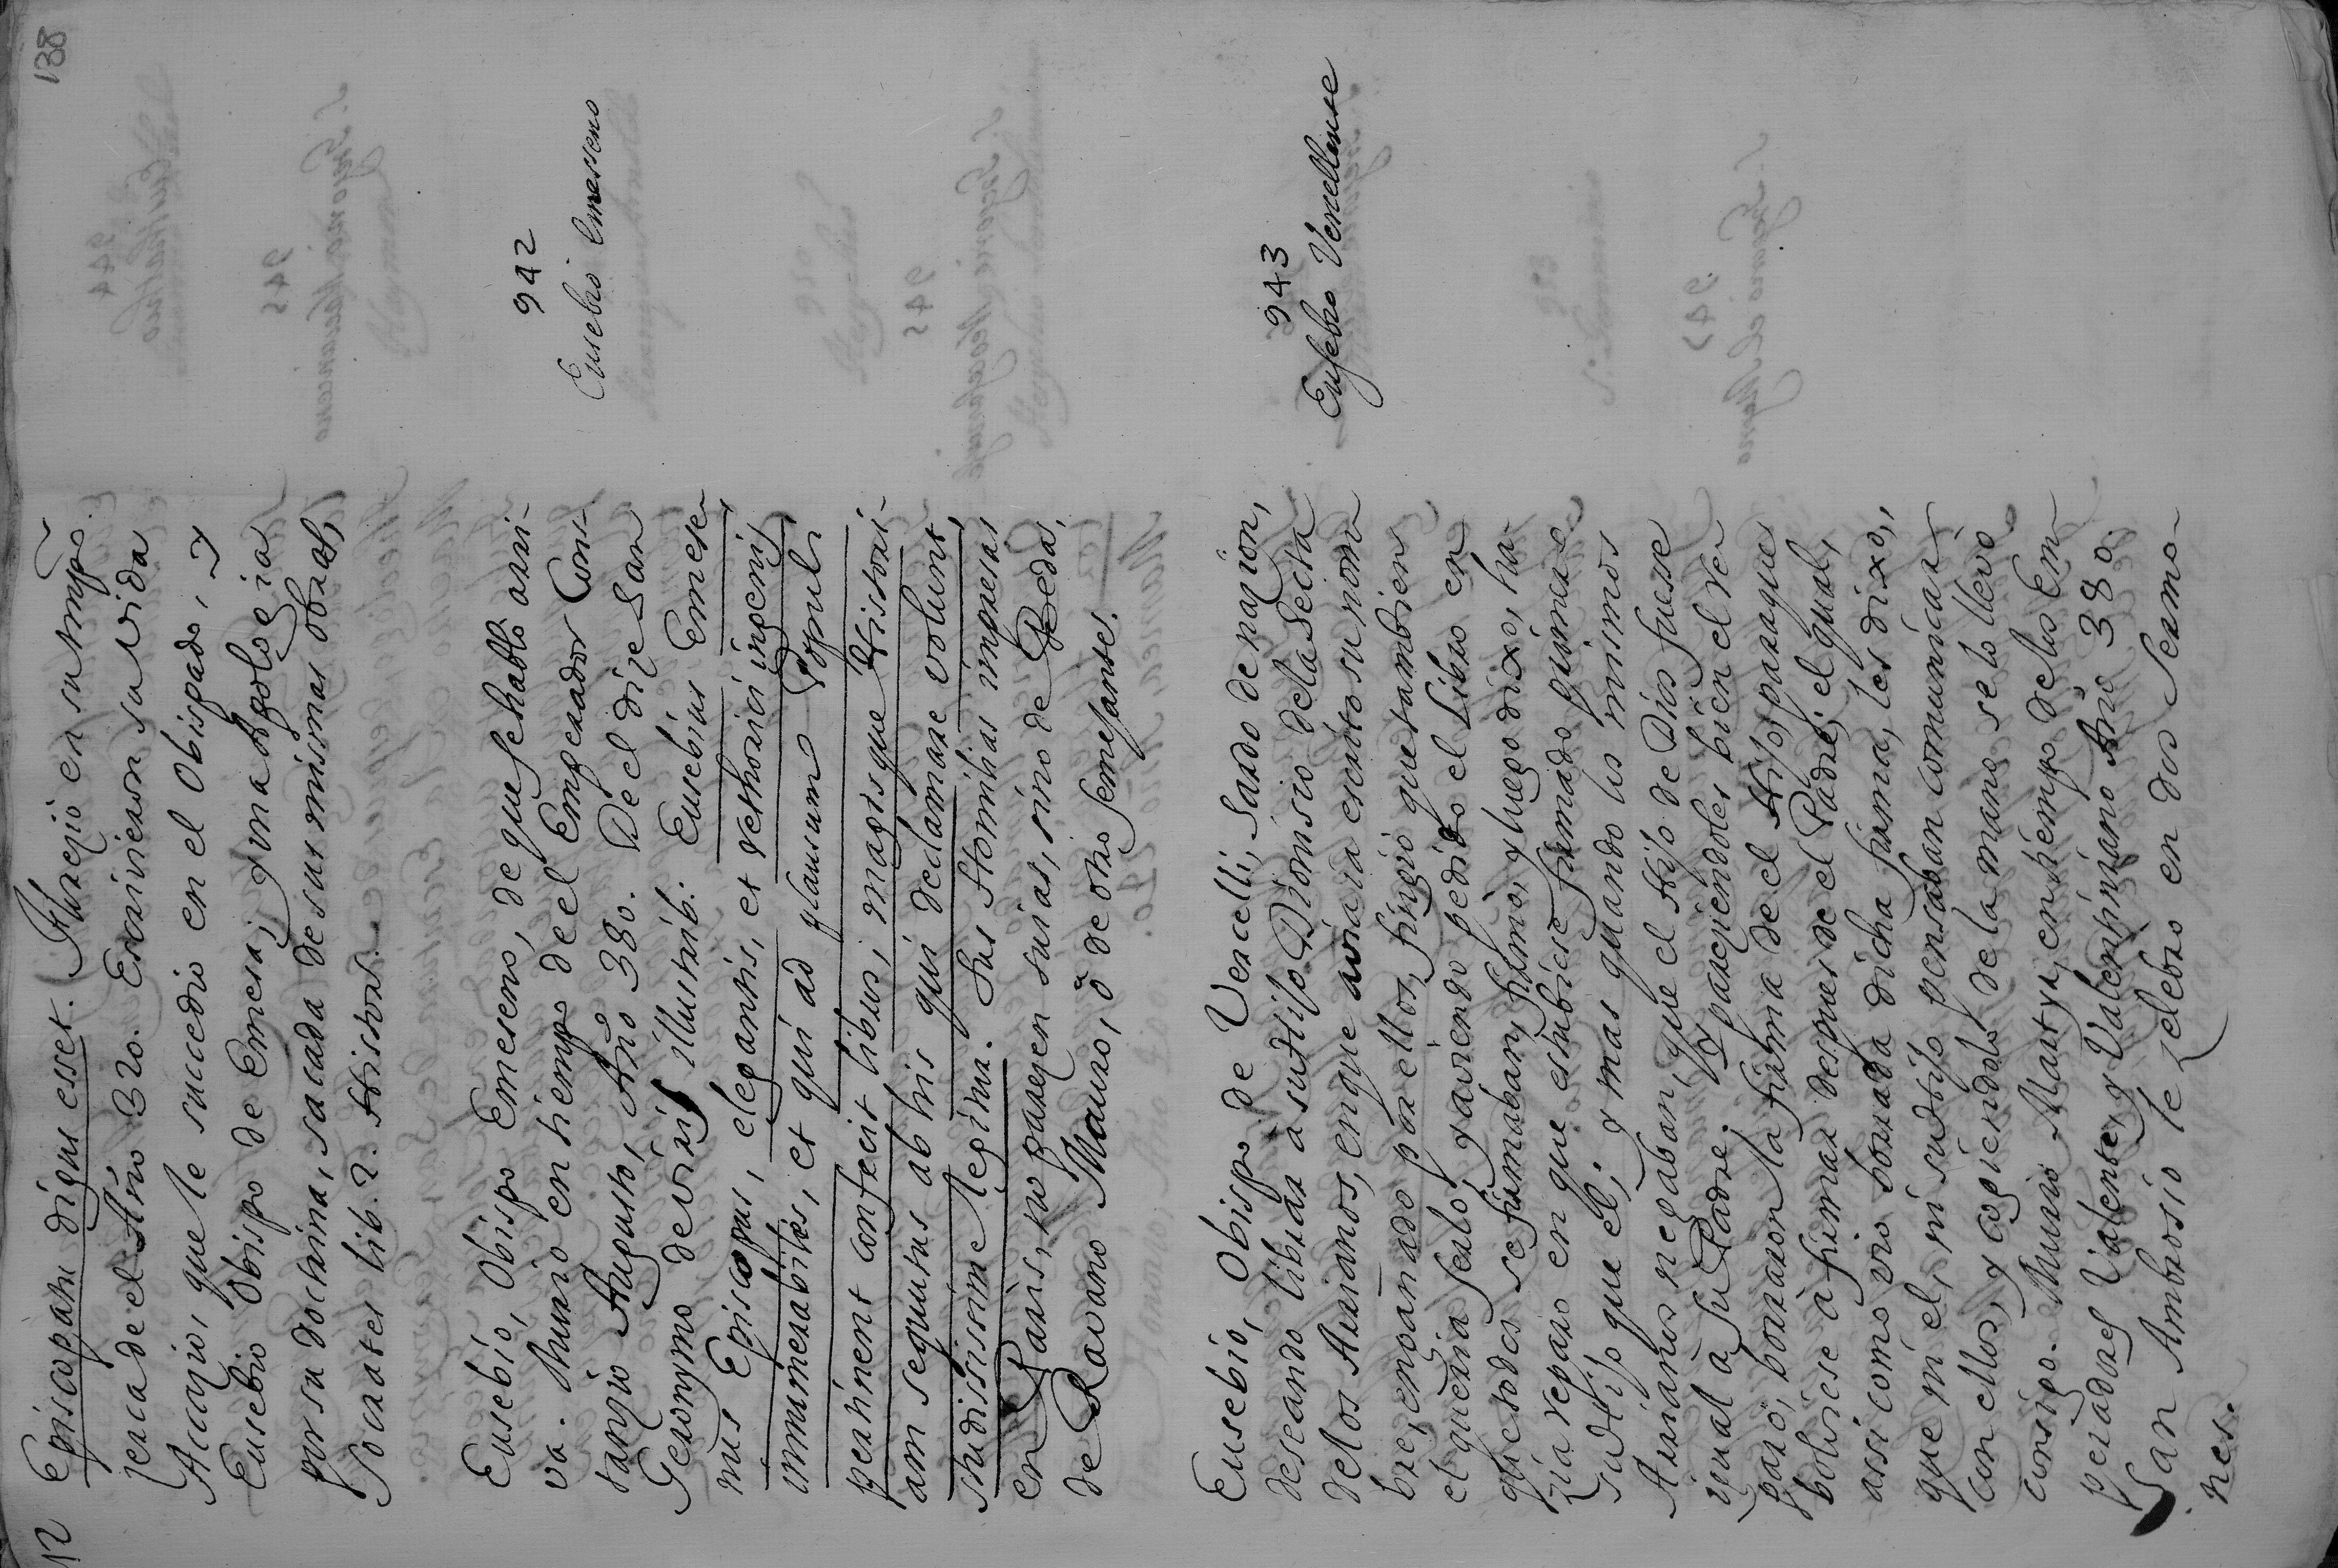 138
12
Episcopatu dignus esset. Florezio en su tmpo
zerca de el Año 320. Escrivieron su vida
Accazio, que le succedio en el Obispado, y
Eusebio Obispo de Emesa, y una Apologia
por su doctrina, sacada de sus mismas obras,
Socrates lib. 2. Histor.
942
Eusebio Emesseno
Eusebio, Obispo Emeseno, de que se hablò arri-
va. Murio en tiempo de el Emperador Cons-
tanzio Augusto, Año 380. De el dize San
Geronymo de viris illustrib: Eusebius Emese-
nus Episcopus, elegantis, et rethorici ingenij,
innumerabiles, et qui ad plausum Populi
pertinent confecit libros, magisque Histori-
am sequutus ab his qui declamare volunt,
studiosissime legitur. Sus Homilias impresas
en Paris, no parezen suias, sino de Beda,
de Ravano Mauro, ò de otro semejante.
943
Eusebio Vercellense
Eusebio, Obispo de Vercelli, Sardo de nazion,
deseando librar a su Hijo Dionisio de la Secta
de los Arrianos, en que avia escrito su nom
bre, engañado por ellos, fingiò que tambien
el queria serlo, y aviendo pedido el Libro en
que todos se firmaban, firmò, y luego dixo, ha-
zia reparo en que estubiese firmado primero
su Hijo que el; y mas quando los mismos
Arrianos negaban, que el Hijo de Dios fuesse
igual a su Padre. Y pareziendoles bien el re
paro, borraron la firma de el Hijo, paraque
bolviese a firmar despues de el Padre; el qual,
assi como vio borrada dicha firma, les dixo,
que ni el, ni su Hijo pensaban comunicar
con ellos, y cogiendolo de la mano se lo llevò
consigo. Murio Martyr, en tiempo de los Em
peradores Valente, y Valentiniano Año 380.
San Ambrosio le zelebrò en dos Sermo-
nes.